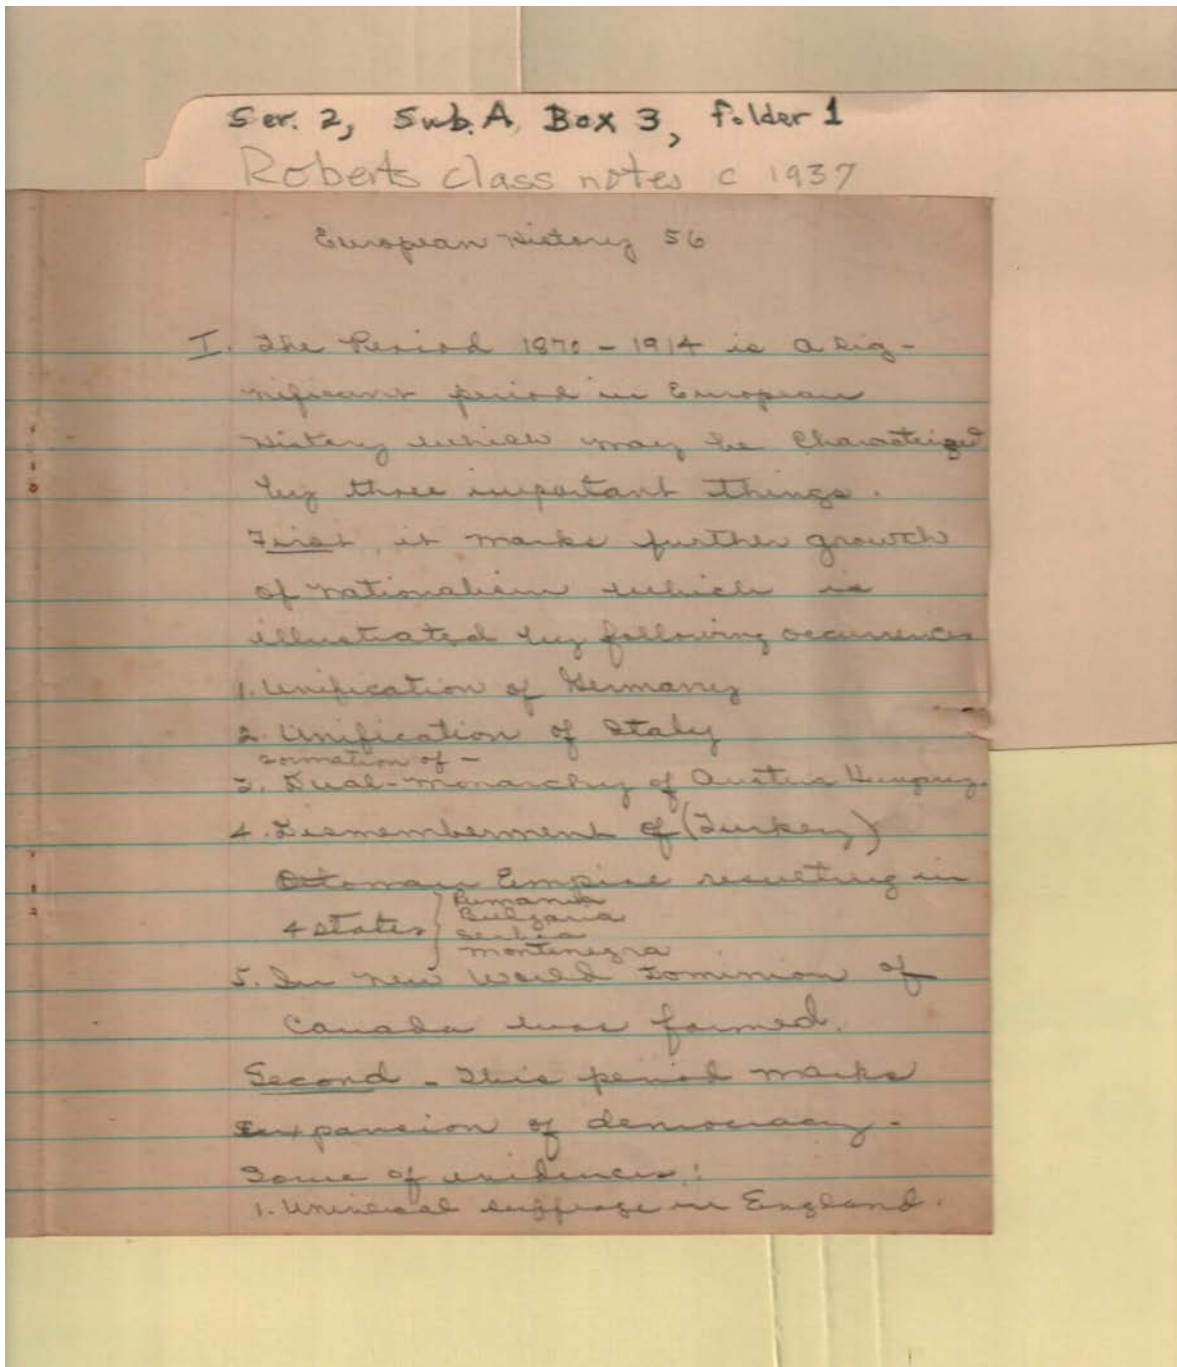 Ser. 2, Sub. A, Box 3, folder 1
Roberts class notes c 1937
European History 56
I. The Period 1870 - 1914 is a sig-
nificant period in European
History which may be Characterized
by three important things.
First, it marks further growth
of nationalism which is
illustrated by following occurrences
1. Unification of Germany
2. Unification of Italy
Formation of -
3. Dual-Monarchy of Austria Hungary.
4. Dismemberment of (Turkey)
Ottoman Empire resulting in
4 states
Rumania
Bulgaria
Serbia
Montenegra
5. In New World Dominion of
Canada was formed.
Second - This period marks
expansion of democracy -
Some of evidences:
1. Universal suffrage in England.